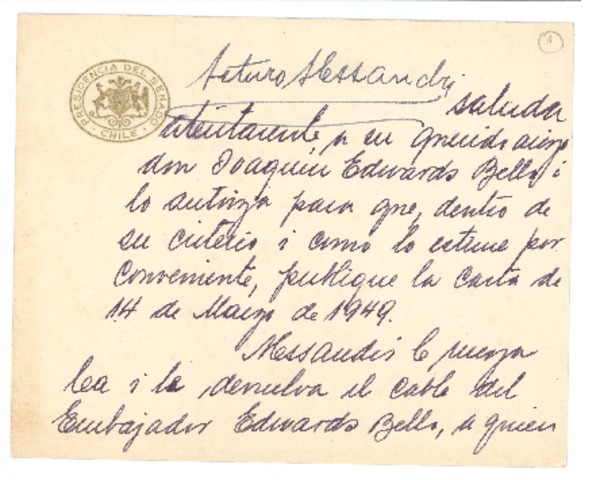 1
PRESIDENCIA DEL SENADO
CHILE
Arturo Alessandri
saluda
atentamente a su querido amigo
don Joaquín Edwards Bello i
lo autoriza para que, dentro de
su criterio i como lo estime por
conveniente, publique la carta de
14 de Marzo de 1949.
Alessandri le ruega
lea i le devuelva el cable del
Embajador Edwards Bello, a quien